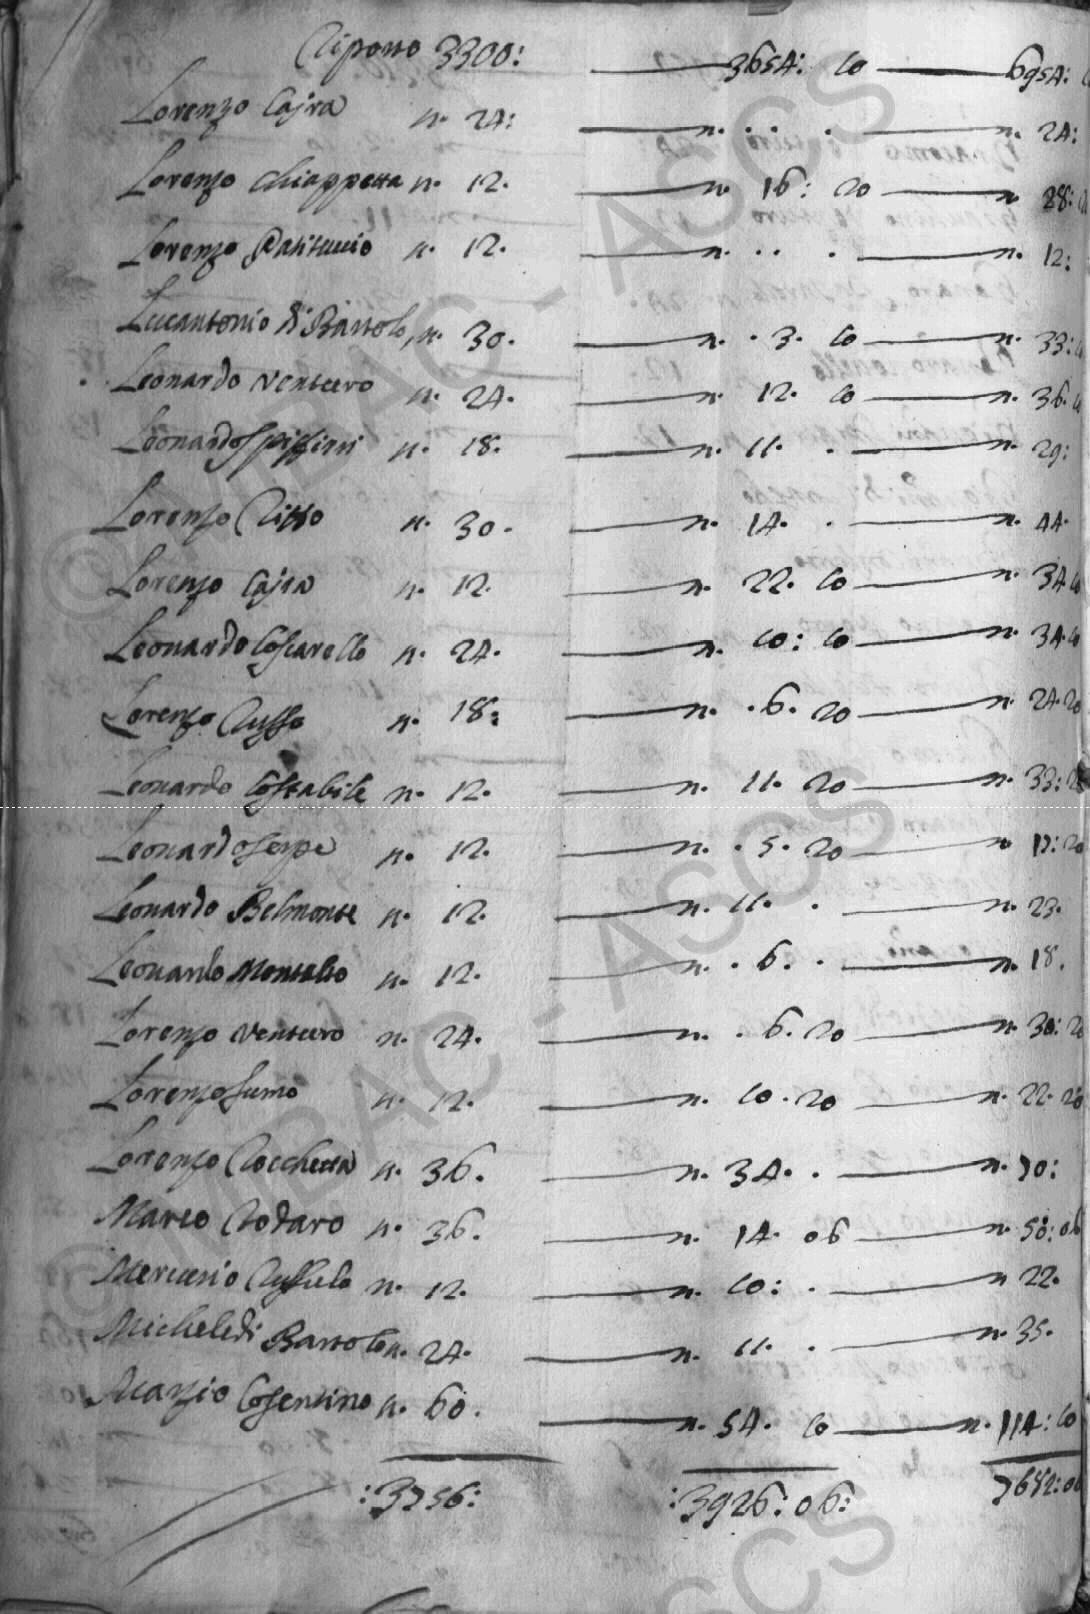 Riporto 3300: 3654: 10 6954:
Lorenzo Cajra n. 24: n. . . . n. 24:
Lorenzo Chiappetta n. 12. n. 16: 20 n. 28:
Lorenzo Patituccio n. 12. n. . . . n. 12:
Lucantonio di Bartolo, n. 30. n. . 3. 10 n. 33:
Leonardo Venturo n. 24. n. 12. 10 n. 36.
Leonardo n. 18. n. 11. . n. 29:
Lorenzo Rizzo n. 30. n. 14. . n. 44.
Lorenzo Cajra n. 12. n. 22. 10 n. 34 10
Leonardo Coscarello n. 24. n. 10: 10 n. 34. 10
Lorenzo Russo n. 18: n. . 6. 20 n. 24. 20
Leonardo Costabile n. 12. n. 11. 20 n. 33: 20
Leonardo Serpe n. 12. n. . 5. 20 n. 17: 20
Leonardo Belmonte n. 12. n. 11. . n. 23.
Leonardo Montalto n. 12. n. . 6. . n. 18.
Lorenzo Venturo n. 24. n. . 6. 20 n. 30: 20
Lorenzo Fumo n. 12. n. 10. 20 n. 22. 20
Lorenzo Rocchetta n. 36. n. 34. . n. 70:
Marco Rodaro n. 36. n. 14. 06 n. 50: 06
Mercurio Ruffulo n. 12. n. 10: . n 22.
Michele di Bartolo n. 24. n. 11. . n. 35.
Marzio Cosentino n. 60. n. 54. 10 n. 114: 10
:3756: :3926: 06: 7682: 06
© MIBAC - ASCS
© MIBAC - ASCS
ASCS